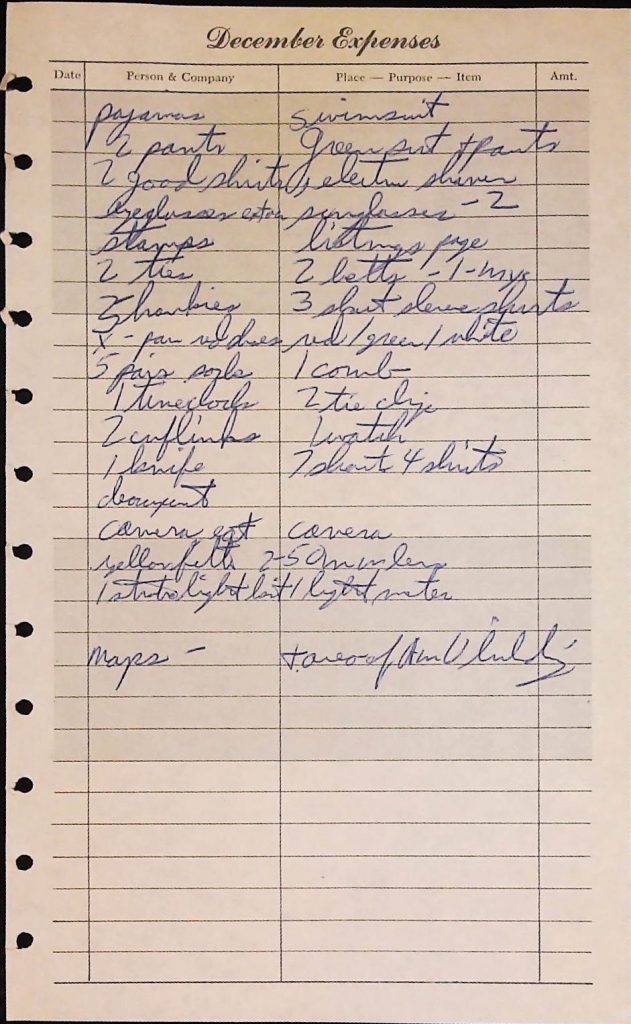 December Expenses
Date Person & Company Place — Purpose — Item Amt.
pajamas swimsuit
2 pants Green suit + pants
2 good shirts, electric shaver
eyeglasses extra sunglasses - 2
stamps listings page
2 ties 2 belts - 1 -
hankies 3 short sleeve shirts
- pair red shoes red / green / white
5 pair 1 comb
1 2 tie clip
2 cuflinks 1 watch
1 knife 7 short 4 shirts

camera camera
yellow 2-50mm lens
1 strobe light kit 1 light meter
Maps -